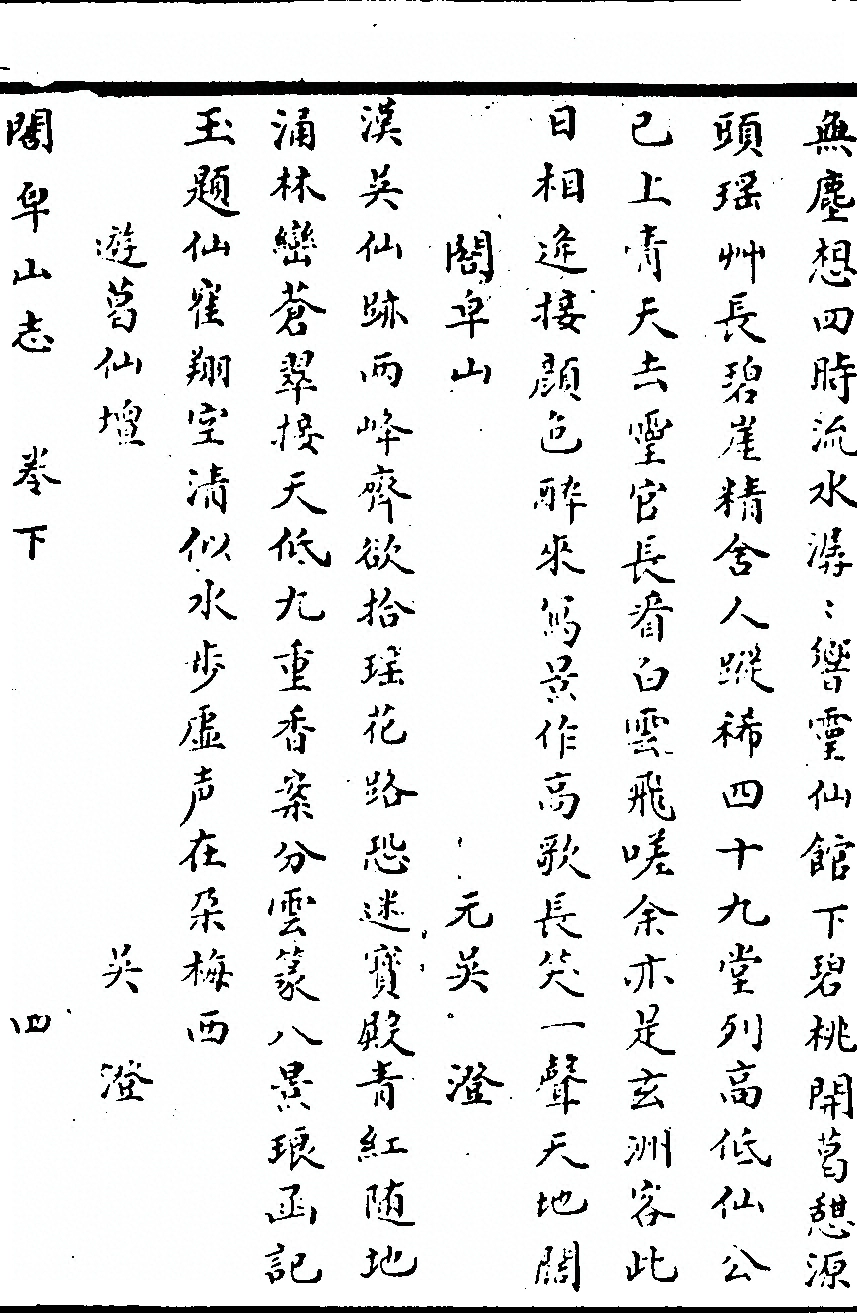 無塵想四時流水潺〻響靈仙館下碧桃開葛憇源
頭瑶艸長碧崖精舍人蹤稀四十九堂列高低仙公
已上青天去靈官長看白雲飛嗟余亦是玄洲客此
日相逢接顔色醉來寫景作高歌長笑一聲天地闊
閤皁山　元吳　澄
漢吳仙跡両峰齊欲拾瑶花路恐迷寳殿青紅随地
涌林巒蒼翠接天低九重香案分雲篆八景琅函記
玉題仙寉翔空清似水步虛声在朶梅西
遊葛仙壇　吳　澄
閤皁山志　卷下　四